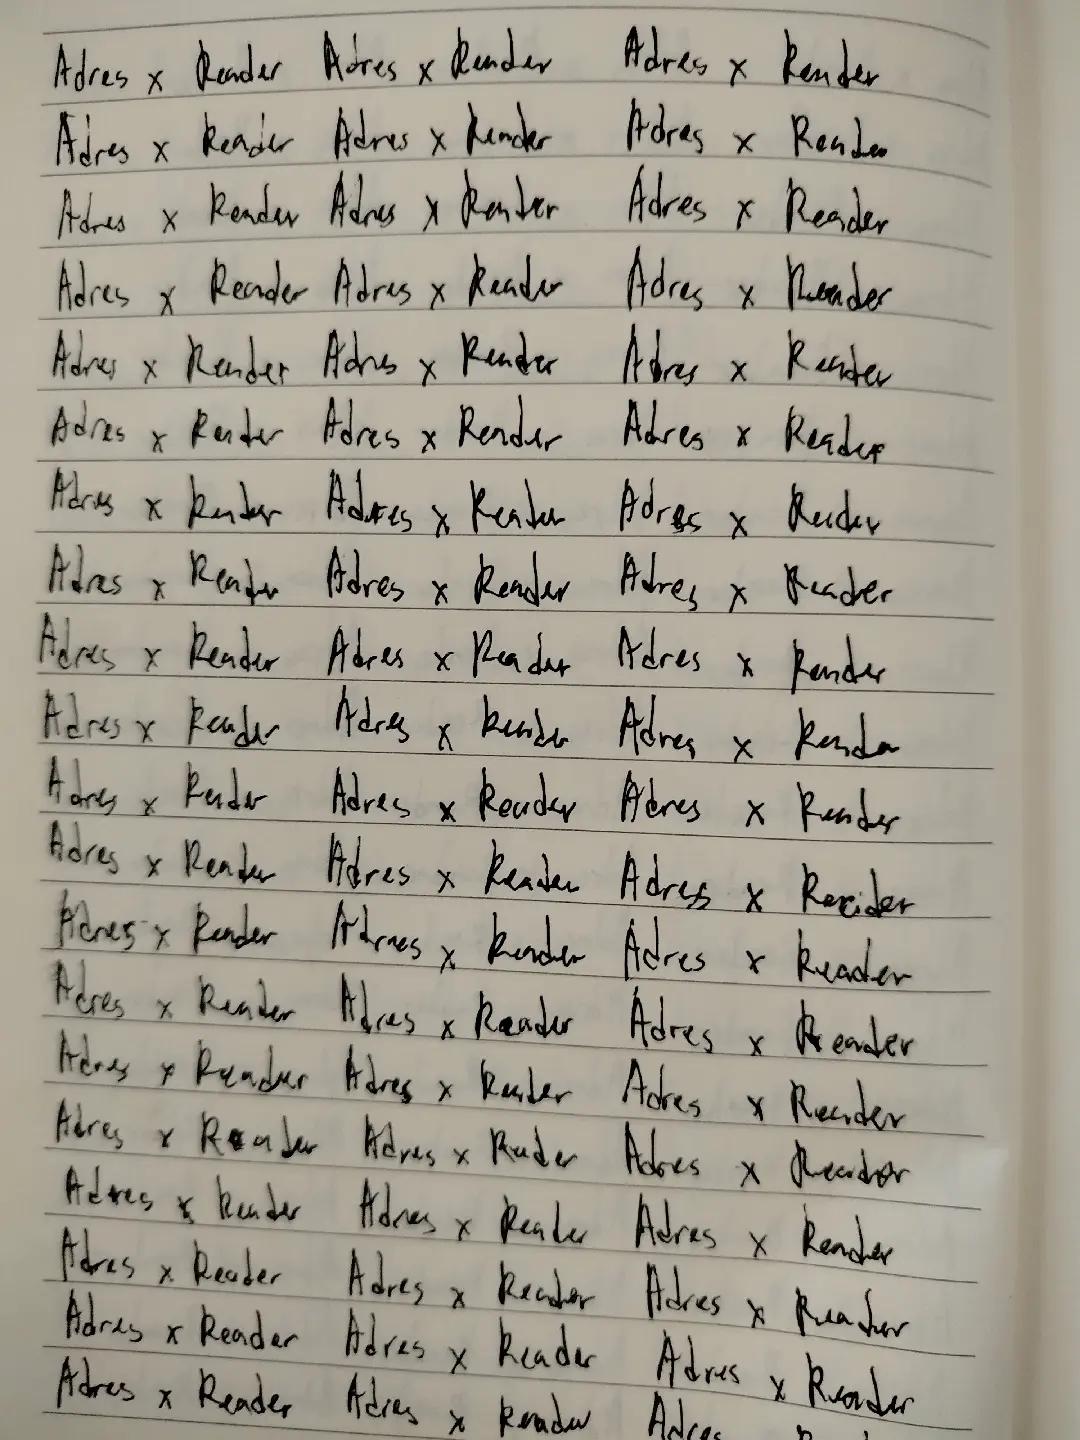 Adres x Render Adres x Render Adres x Render
Adres x Render Adres x Render Adres x Render
Adres x Render Adres x Render Adres x Render
Adres x Render Adres x Render Adres x Render
Adres x Render Adres x Render Adres x Render
Adres x Render Adres x Render Adres x Render
Adres x Render Adres x Render Adres x Render
Adres x Render Adres x Render Adres x Render
Adres x Render Adres x Render Adres x Render
Adres x Render Adres x Render Adres x Render
Adres x Render Adres x Render Adres x Render
Adres x Render Adres x Render Adres x Render
Adres x Render Adres x Render Adres x Render
Adres x Render Adres x Render Adres x Render
Adres x Render Adres x Render Adres x Render
Adres x Render Adres x Render Adres x Render
Adres x Render Adres x Render Adres x Render
Adres x Render Adres x Render Adres x Render
Adres x Render Adres x Render Adres x Render
Adres x Render Adres x Render Adres